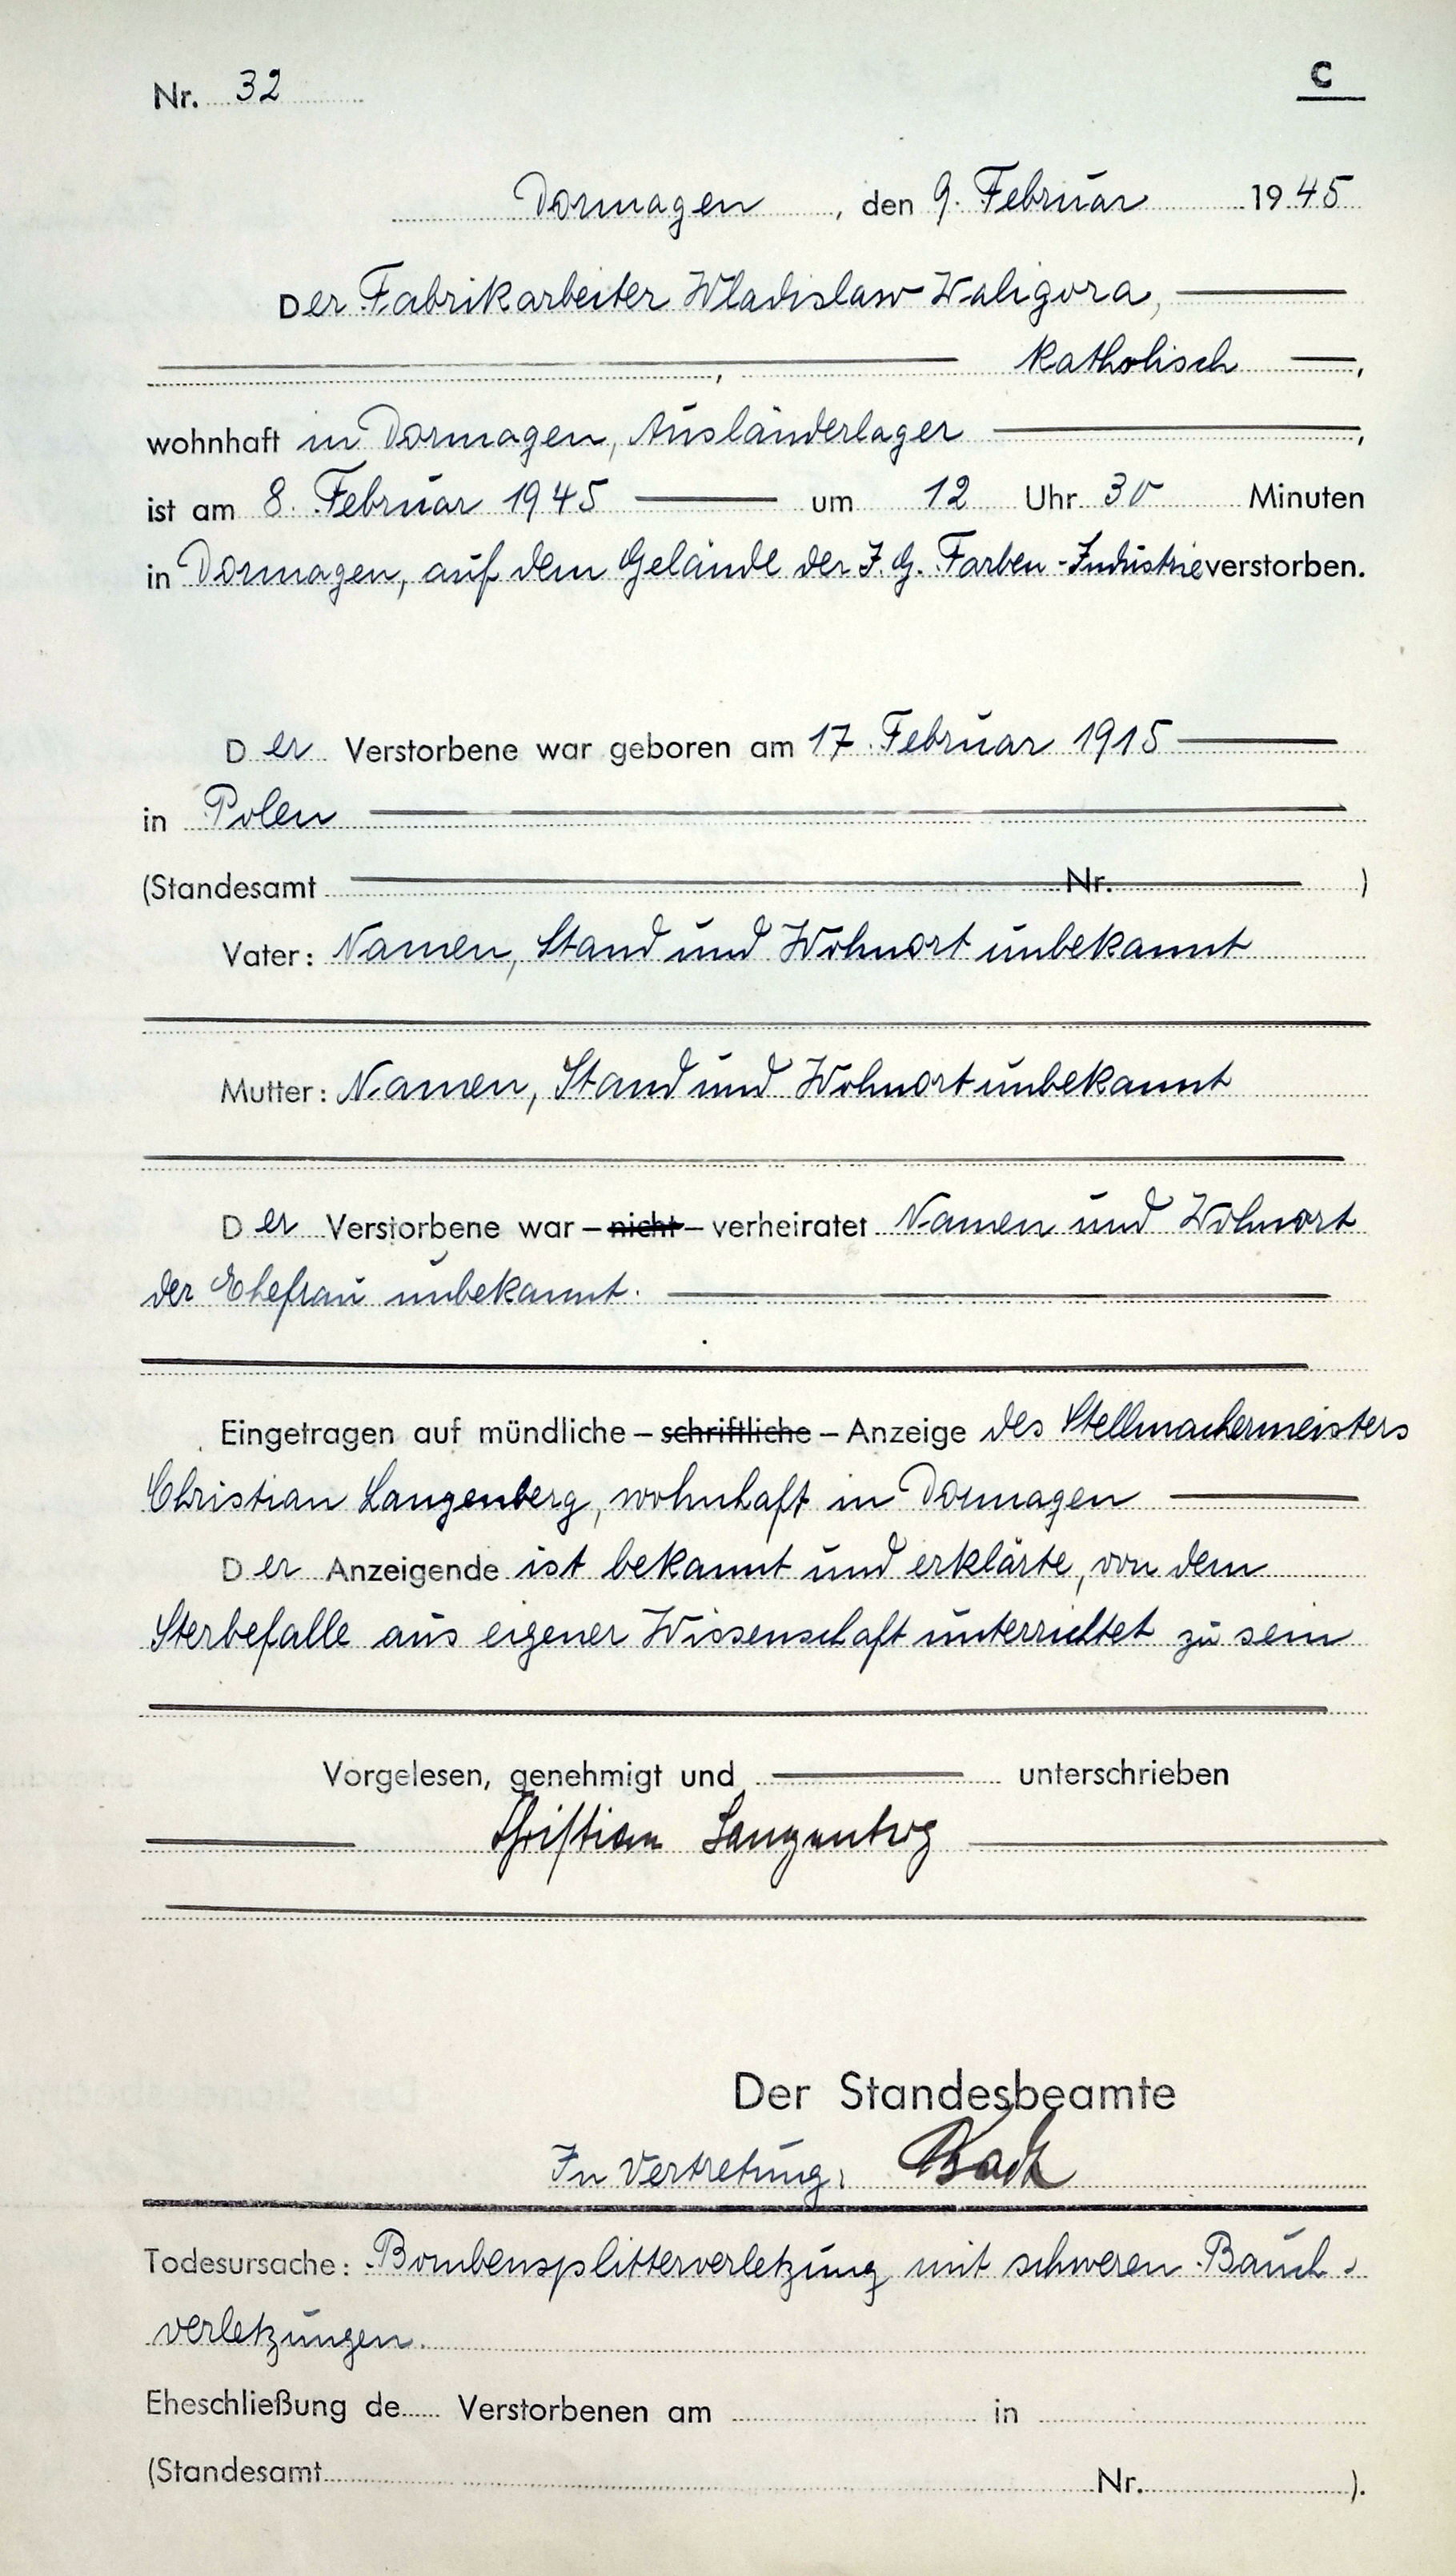 Nr. 32
C
Dormagen, den 9. Februar 1945
Der Fabrikarbeiter Wladislaw Waligora,
, katholisch ,
wohnhaft in Dormagen, Ausländerlager ,
ist am 8. Februar 1945 um 12 Uhr 30 Minuten
in Dormagen, auf dem Gelände der I. G. Farben-Industrie verstorben.
Der Verstorbene war geboren am 17. Februar 1915
in Polen
(Standesamt Nr. )
Vater: Namen, Stand und Wohnort unbekannt
Mutter: Namen, Stand und Wohnort unbekannt
Der Verstorbene war – nicht – verheiratet Namen und Wohnort
der Ehefrau unbekannt.
Eingetragen auf mündliche – schriftliche – Anzeige des Stellmachermeisters
Christian Langenberg, wohnhaft in Dormagen
Der Anzeigende ist bekannt und erklärte, von dem
Sterbefalle aus eigener Wissenschaft unterrichtet zu sein
Vorgelesen, genehmigt und unterschrieben
Christian Langenberg
Der Standesbeamte
In Vertretung:
Todesursache: Bombensplitterverletzung mit schweren Bauch-
verletzungen.
Eheschließung de Verstorbenen am in
(Standesamt Nr. ).